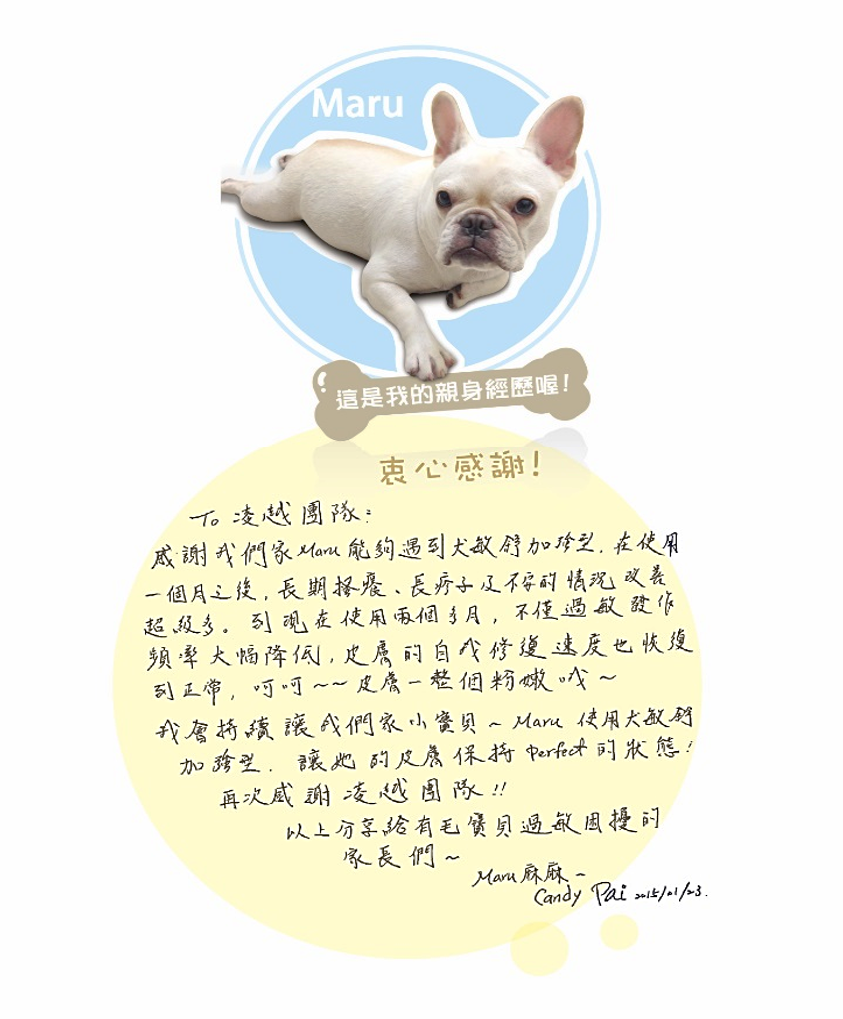 Maru
這是我的親身經歷喔!
衷心感謝!
To 凌越團隊:
感謝我們家Maru能夠遇到犬敏舒加強型.在使用
一個月之後,長期搔癢、長疹子及不安的情況改善
超級多。到現在使用兩個多月,不僅過敏發作
頻率大幅降低,皮膚的自我修復速度也恢復
到正常,呵呵~~皮膚一整個粉嫩哦~
我會持續讓我們家小寶貝~Maru 使用犬敏舒
加強型.讓她的皮膚保持perfect的狀態!
再次感謝凌越團隊!!
以上分享給有毛寶貝過敏困擾的
家長們~
Maru麻麻~
Candy Pai 2015/01/23.